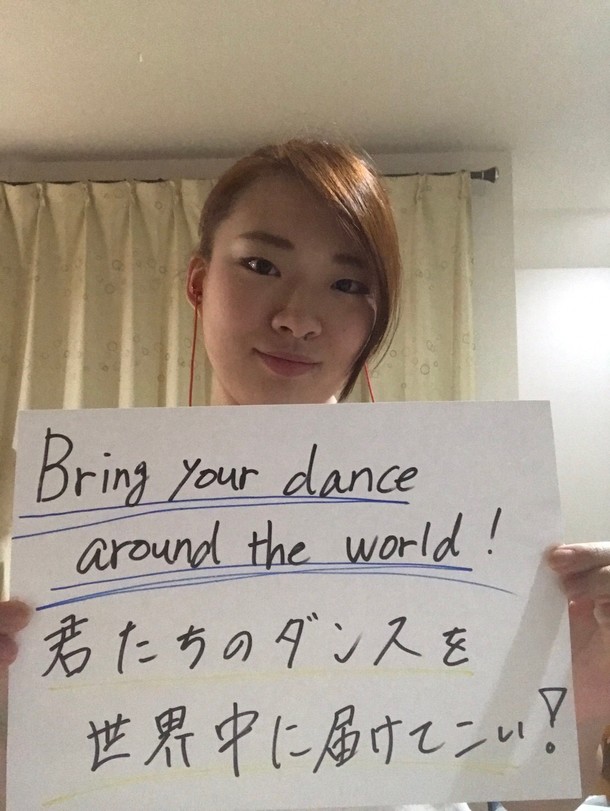 Bring your dance
around the world!
君たちのダンスを
世界中に届けてこい!